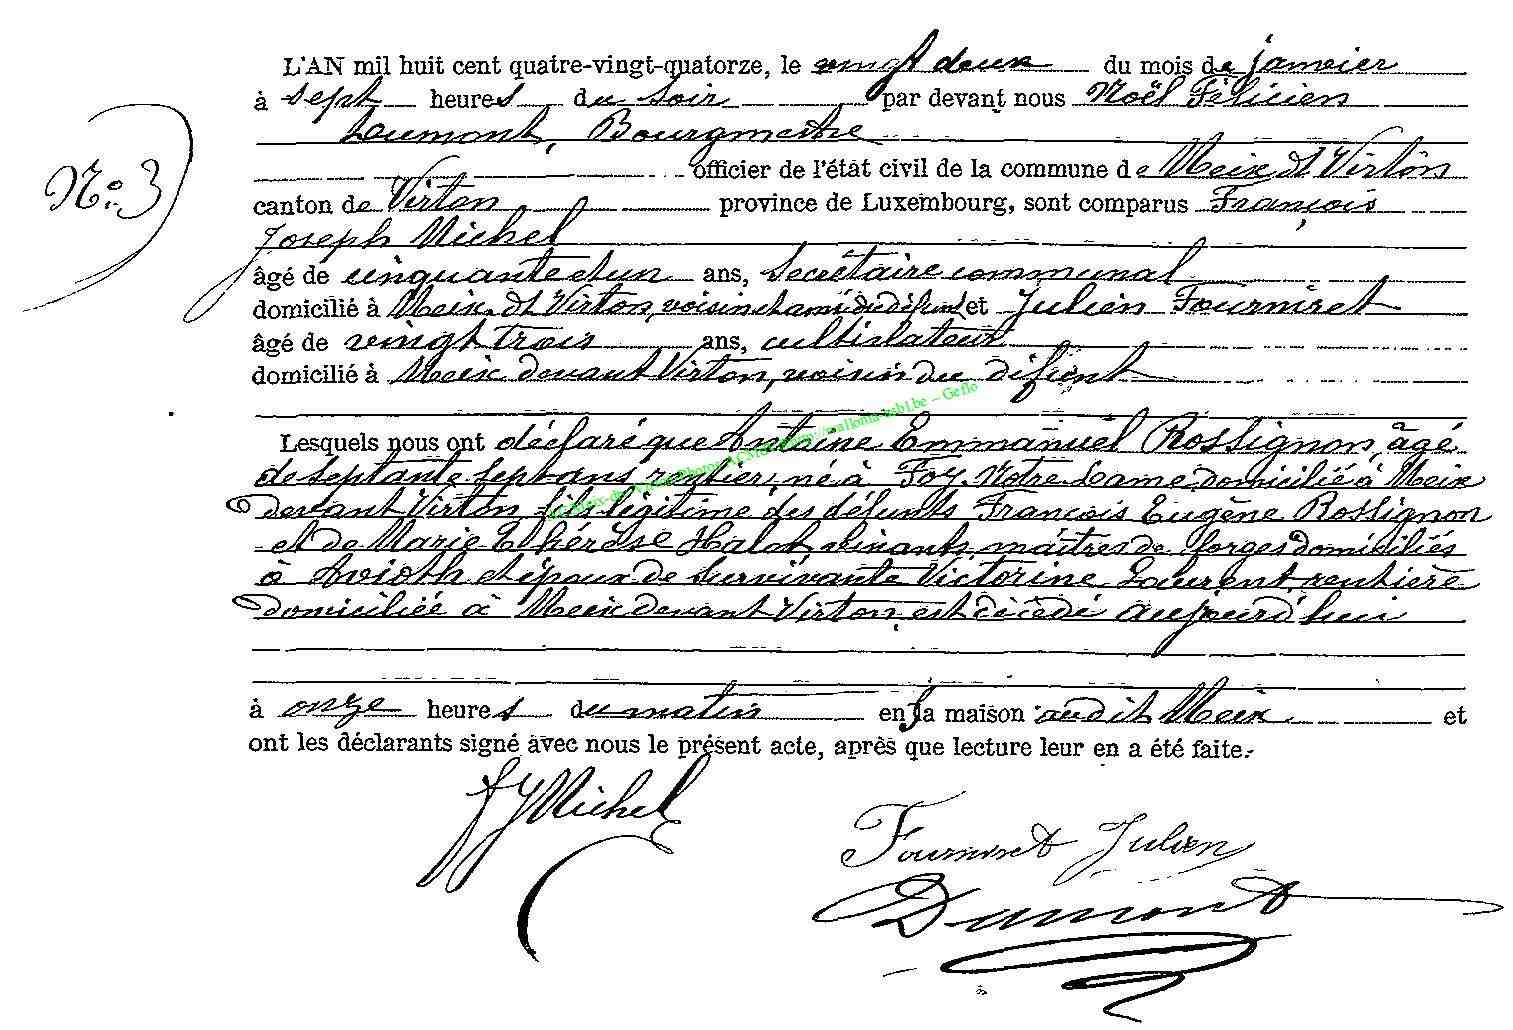 L'AN mil huit cent quatre-vingt-quatorze, le vingt deux du mois de janvier
à sept heures du soir par devant nous Noël Félicien
Dumont, Bourgmestre
officier de l'état civil de la commune de Meix dt Virton
N° 3
canton de Virton province de Luxembourg, sont comparus François
Joseph Michel
âgé de cinquante et un ans, Secrétaire communal
domicilié à Meix dt Virton, voisin et ami du défunt et Julien Fourniret
âgé de vingt trois ans, cultivateur
domicilié à Meix devant Virton, voisin du défunt
Lesquels nous ont déclaré que Antoine Emmanuel Rossignon, âgé
de septante sept ans, rentier, né à Foy Notre Dame, domicilié à Meix
devant Virton fils légitime des défunts François Eugène Rossignon
et de Marie Thérèse Halot, vivants, maîtres de forges domiciliés
à Avioth et époux de survivante Victorine Laurent, rentière
domiciliée à Meix devant Virton est décédé aujourd'hui
à onze heures du matin en sa maison audit Meix et
ont les déclarants signé avec nous le présent acte, après que lecture leur en a été faite.-
FJ Michel
Fourniret Julien
Dumont